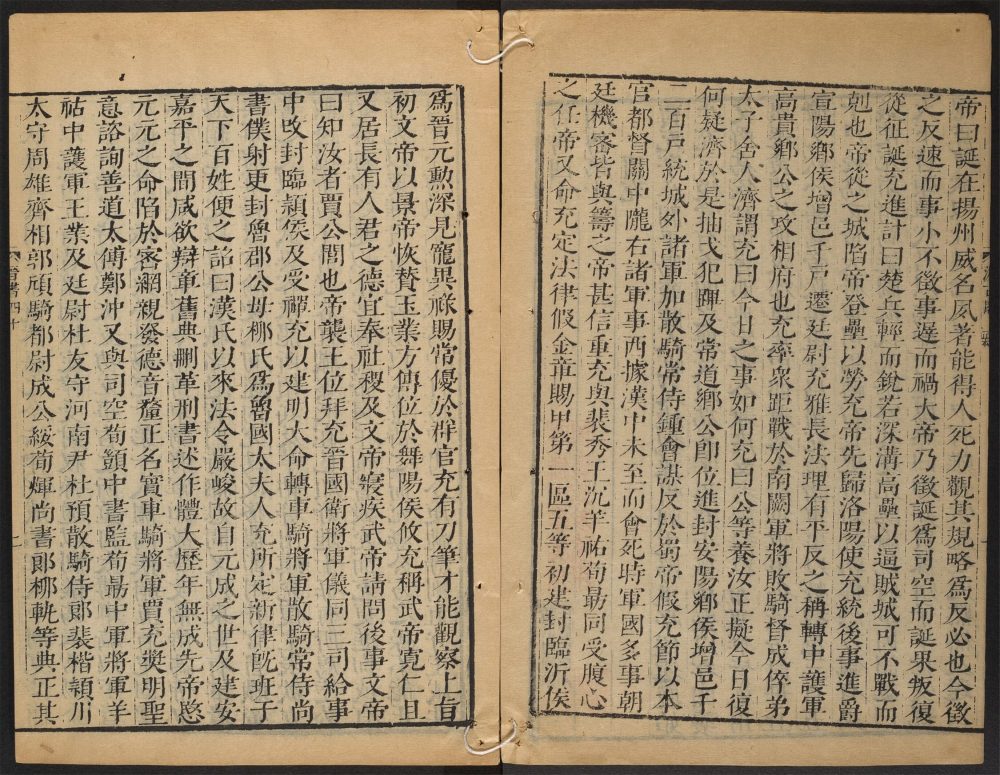 帝曰誕在揚州威名夙著能得人死力觀其規略爲反必也今徵
之反速而事小不徵事遲而禍大帝乃徵誕爲司空而誕果叛復
從征誕充進計曰楚兵輕而銳若深溝高壘以逼賊城可不戰而
剋也帝從之城陷帝登壘以勞充帝先歸洛陽使充統後事進爵
宣陽鄉侯增邑千戸遷廷尉充雅長法理有平反之稱轉中護軍
高貴鄉公之攻相府也充率衆距戰於南闕軍將敗騎督成倅弟
太子舍人濟謂充曰今日之事如何充曰公等養汝正擬今日復
何疑濟於是抽戈犯蹕及常道鄉公卽位進封安陽鄉侯增邑千
二百戸統城外諸軍加散騎常侍鍾會謀反於蜀帝假充節以本
官都督關中隴右諸軍事西據漢中未至而會死時軍國多事朝
廷機密皆與籌之帝甚信重充與裴秀王沉羊祜荀朂同受腹心
之任帝又命充定法律假金章賜甲第一區五等初建封臨沂侯
爲晉元勳深見寵異祿賜常優於群官充有刀筆才能觀察上旨
初文帝以景帝恢贊王業方傳位於舞陽侯攸充稱武帝寬仁且
又居長有人君之德宜奉社稷及文帝寢疾武帝請問後事文帝
曰知汝者賈公閭也帝襲王位拜充晉國衛將軍儀同三司給事
中改封臨潁侯及受禪充以建明大命轉車騎將軍散騎常侍尚
書僕射更封魯郡公母柳氏爲魯國太夫人充所定新律旣班于
天下百姓便之詔曰漢氏以來法令嚴峻故自元成之世及建安
嘉平之間咸欲辯章舊典刪革刑書述作體大歷年無成先帝愍
元元之命陷於密網親發德音釐正名實車騎將軍賈充奬明聖
意諮詢善道太傅鄭沖又與司空荀顗中書監荀朂中軍將軍羊
祜中護軍王業及廷尉杜友守河南尹杜預散騎侍郎裴楷潁川
太守周雄齊相郭頎騎都尉成公綏荀煇尚書郎柳軌等典正其
晉書四十